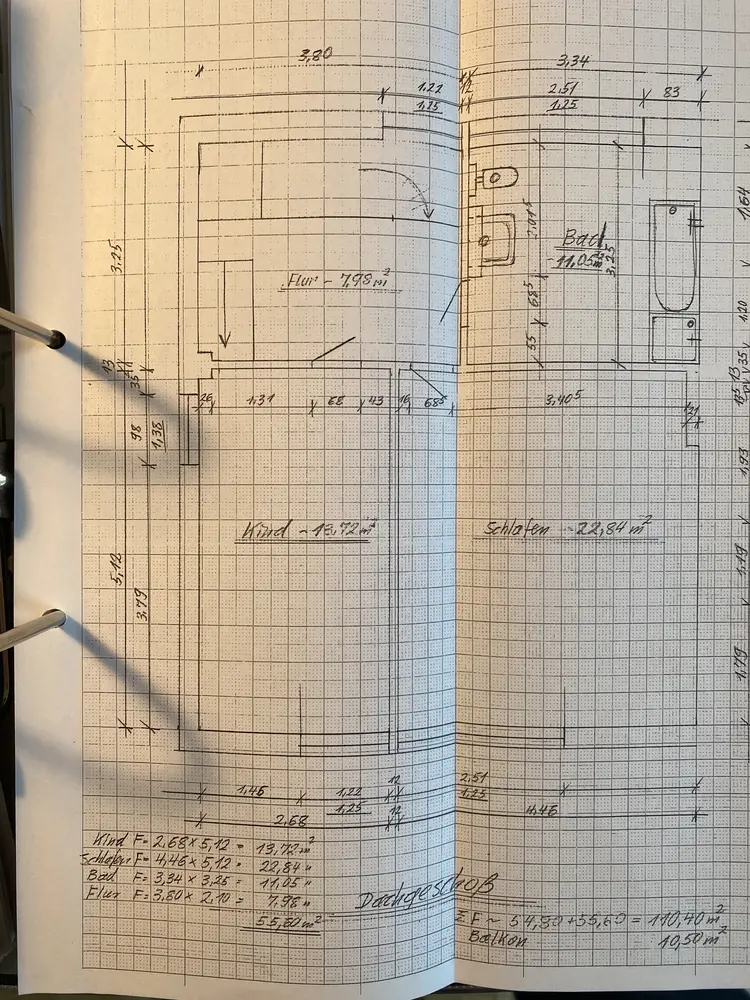 3,80
3,34
1,22
1,25
12
2,51
1,25
83
3,25
Flur ~ 7,98 m²
Bad
~ 11,05 m²
2,01⁵
68⁵
55
3,25
1,64
1,20
35
13
13
35
98
1,38
26
1,31
68
43
16
68⁵
3,40⁵
21
1,93
Kind ~ 13,72 m²
Schlafen ~ 22,84 m²
5,12
3,79
1,19
1,79
1,46
1,22
1,25
12
2,51
1,25
2,68
12
4,46
Kind F = 2,68 x 5,12 = 13,72 m²
Schlafen F = 4,46 x 5,12 = 22,84 "
Bad F = 3,34 x 3,25 = 11,05 "
Flur F = 3,80 x 2,10 = 7,98 "
55,60 m²
Dachgeschoß
Σ F ~ 54,80 + 55,60 = 110,40 m²
Balkon 10,50 m²